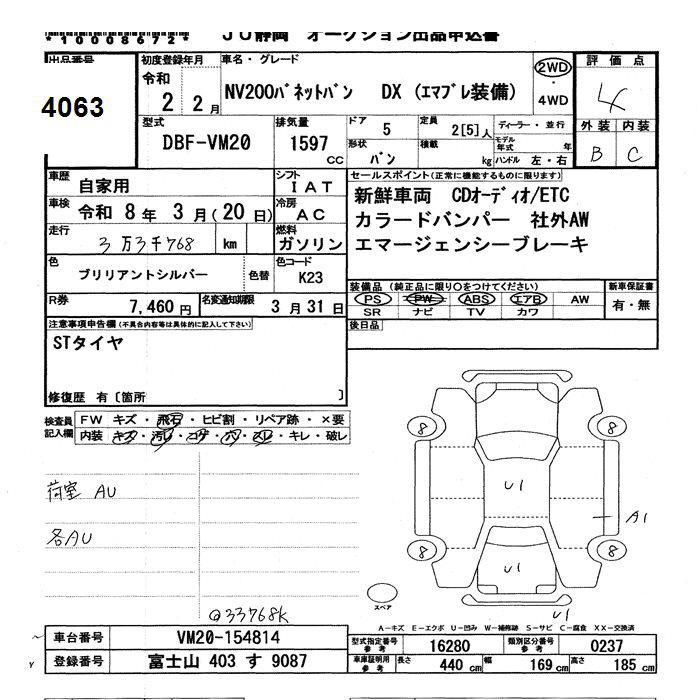 *10008672*
JU静岡 オークション出品申込書
出品番号
4063
初度登録年月
令和
2 2月
車名・グレード
NV200バネットバン DX (エマブレ装備)
2WD
・
4WD
評価点
4
外装 内装
B C
型式
DBF-VM20
排気量
1597
cc
ドア
5
定員
2[5]人
ディーラー・並行
モデル年式 年
形状
バン
積載
kg
ハンドル 左・右
車歴
自家用
シフト
IAT
車検
令和 8年 3月(20日)
冷房
AC
走行
3万3千768 km
燃料
ガソリン
セールスポイント(正常に機能するものに限ります)
新鮮車両 CDオーディオ/ETC
カラードバンパー 社外AW
エマージェンシーブレーキ
色
ブリリアントシルバー
色替
色コード
K23
装備品(純正品に限り○をつけてください)
PS PW ABS エアB AW
SR ナビ TV カワ
新車保証書
有・無
R券
7,460円
名変通知期限
3月31日
後日品
注意事項申告欄(不具合内容等は具体的に記入して下さい)
STタイヤ
修復歴 有〔箇所 〕
検査員
記入欄
FW キズ・飛石・ヒビ割・リペア跡・×要
内装・キズ・汚レ・コゲ・穴・スレ・キレ・破レ
荷室 AU
各AU
@33768K
8
8
8
8
U1
U1
A1
U1
スペア
A−キズ E−エクボ U−凹み W−補修跡 S−サビ C−腐食 XX−交換済
車台番号
VM20-154814
登録番号
富士山 403 す 9087
型式指定番号
参考
16280
類別区分番号
参考
0237
車庫証明用
参考
長さ
440 cm
幅
169 cm
高さ
185 cm